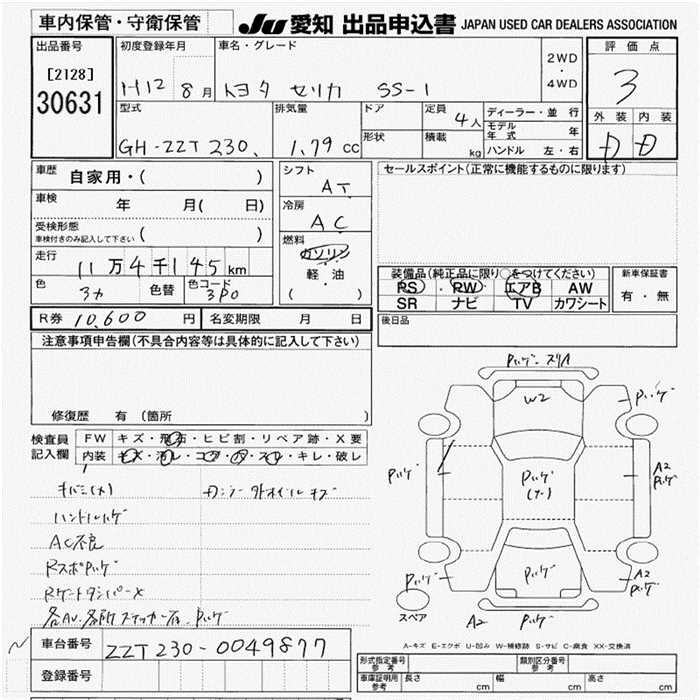 車内保管・守衛保管
JU 愛知 出品申込書 JAPAN USED CAR DEALERS ASSOCIATION
出品番号
[2128]
30631
初度登録年月
H12 8月
車名・グレード
トヨタ セリカ SS-1
2WD
・
4WD
評価点
3
外装 内装
D D
型式
GH-ZZT230.
排気量
1.79 cc
ドア
形状
定員
4人
積載
kg
ディーラー・並行
モデル年式 年
ハンドル 左・右
車歴 自家用・( )
車検 年 月( 日)
受検形態
車検付きのみ記入して下さい ( )
走行 11万4千145km
色 色替 色コード
3P0
シフト
AT
冷房
AC
燃料
ガソリン
軽・油
( )
セールスポイント(正常に機能するものに限ります)
装備品(純正品に限り○をつけてください)
PS PW エアB AW
SR ナビ TV カワシート
新車保証書
有・無
後日品
R券 10,600円
名変期限 月 日
注意事項申告欄(不具合内容等は具体的に記入して下さい)
修復歴 有 (箇所 )
検査員
記入欄
FW キズ・飛石・ヒビ割・リペア跡・X要
内装 キズ・汚レ・コゲ・穴・スレ・キレ・破レ
ハンドルハゲ
AC不良
RスポPハゲ
Rゲートダンパー×
車台番号 ZZT230-0049877
登録番号
Pハゲ スリA
W2
Pハゲ
Pハゲ
Pハゲ
A2
Pハゲ
Pハゲ
Pハゲ
A2
Pハゲ
スペア
A2 Pハゲ
A-キズ E-エクボ U-凹み W-補修跡 S-サビ C-腐食 XX-交換済
形式指定番号
参考
類別区分番号
参考
車庫証明用
参考
長さ cm
幅 cm
高さ cm